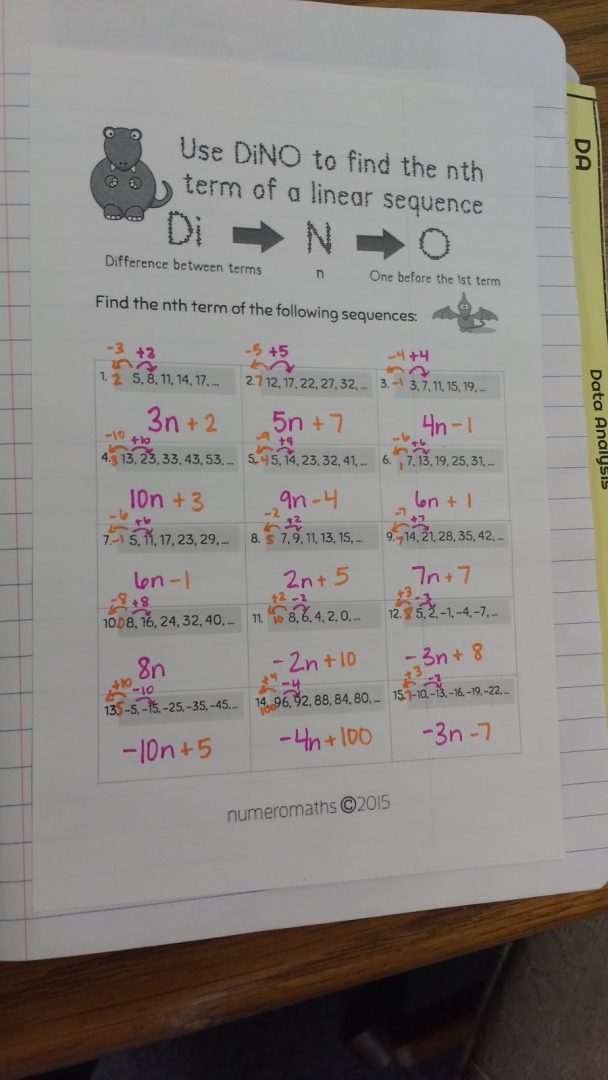 DA
Data Analysis
Use DiNO to find the nth
term of a linear sequence
Di N O
Difference between terms n One before the 1st term
Find the nth term of the following sequences:
-3 +3 -5 +5 -4 +4
1. 2 5, 8, 11, 14, 17, ... 2. 7 12, 17, 22, 27, 32, ... 3. -1 3, 7, 11, 15, 19, ...
3n + 2 5n + 7 4n - 1
-10 +10 -9 +9 -6 +6
4. 3 13, 23, 33, 43, 53, ... 5. -4 5, 14, 23, 32, 41, ... 6. 1 7, 13, 19, 25, 31, ...
10n + 3 9n - 4 6n + 1
-6 +6 -2 +2 -7 +7
7. -1 5, 11, 17, 23, 29, ... 8. 5 7, 9, 11, 13, 15, ... 9. 7 14, 21, 28, 35, 42, ...
6n - 1 2n + 5 7n + 7
-8 +8 +2 -2 +3 -3
10. 0 8, 16, 24, 32, 40, ... 11. 10 8, 6, 4, 2, 0, ... 12. 8 5, 2, -1, -4, -7, ...
8n -2n + 10 -3n + 8
+10 -10 +4 -4 +3 -3
13. 5 -5, -15, -25, -35, -45, ... 14. 100 96, 92, 88, 84, 80, ... 15. -7 -10, -13, -16, -19, -22, ...
-10n + 5 -4n + 100 -3n - 7
numeromaths ©2015